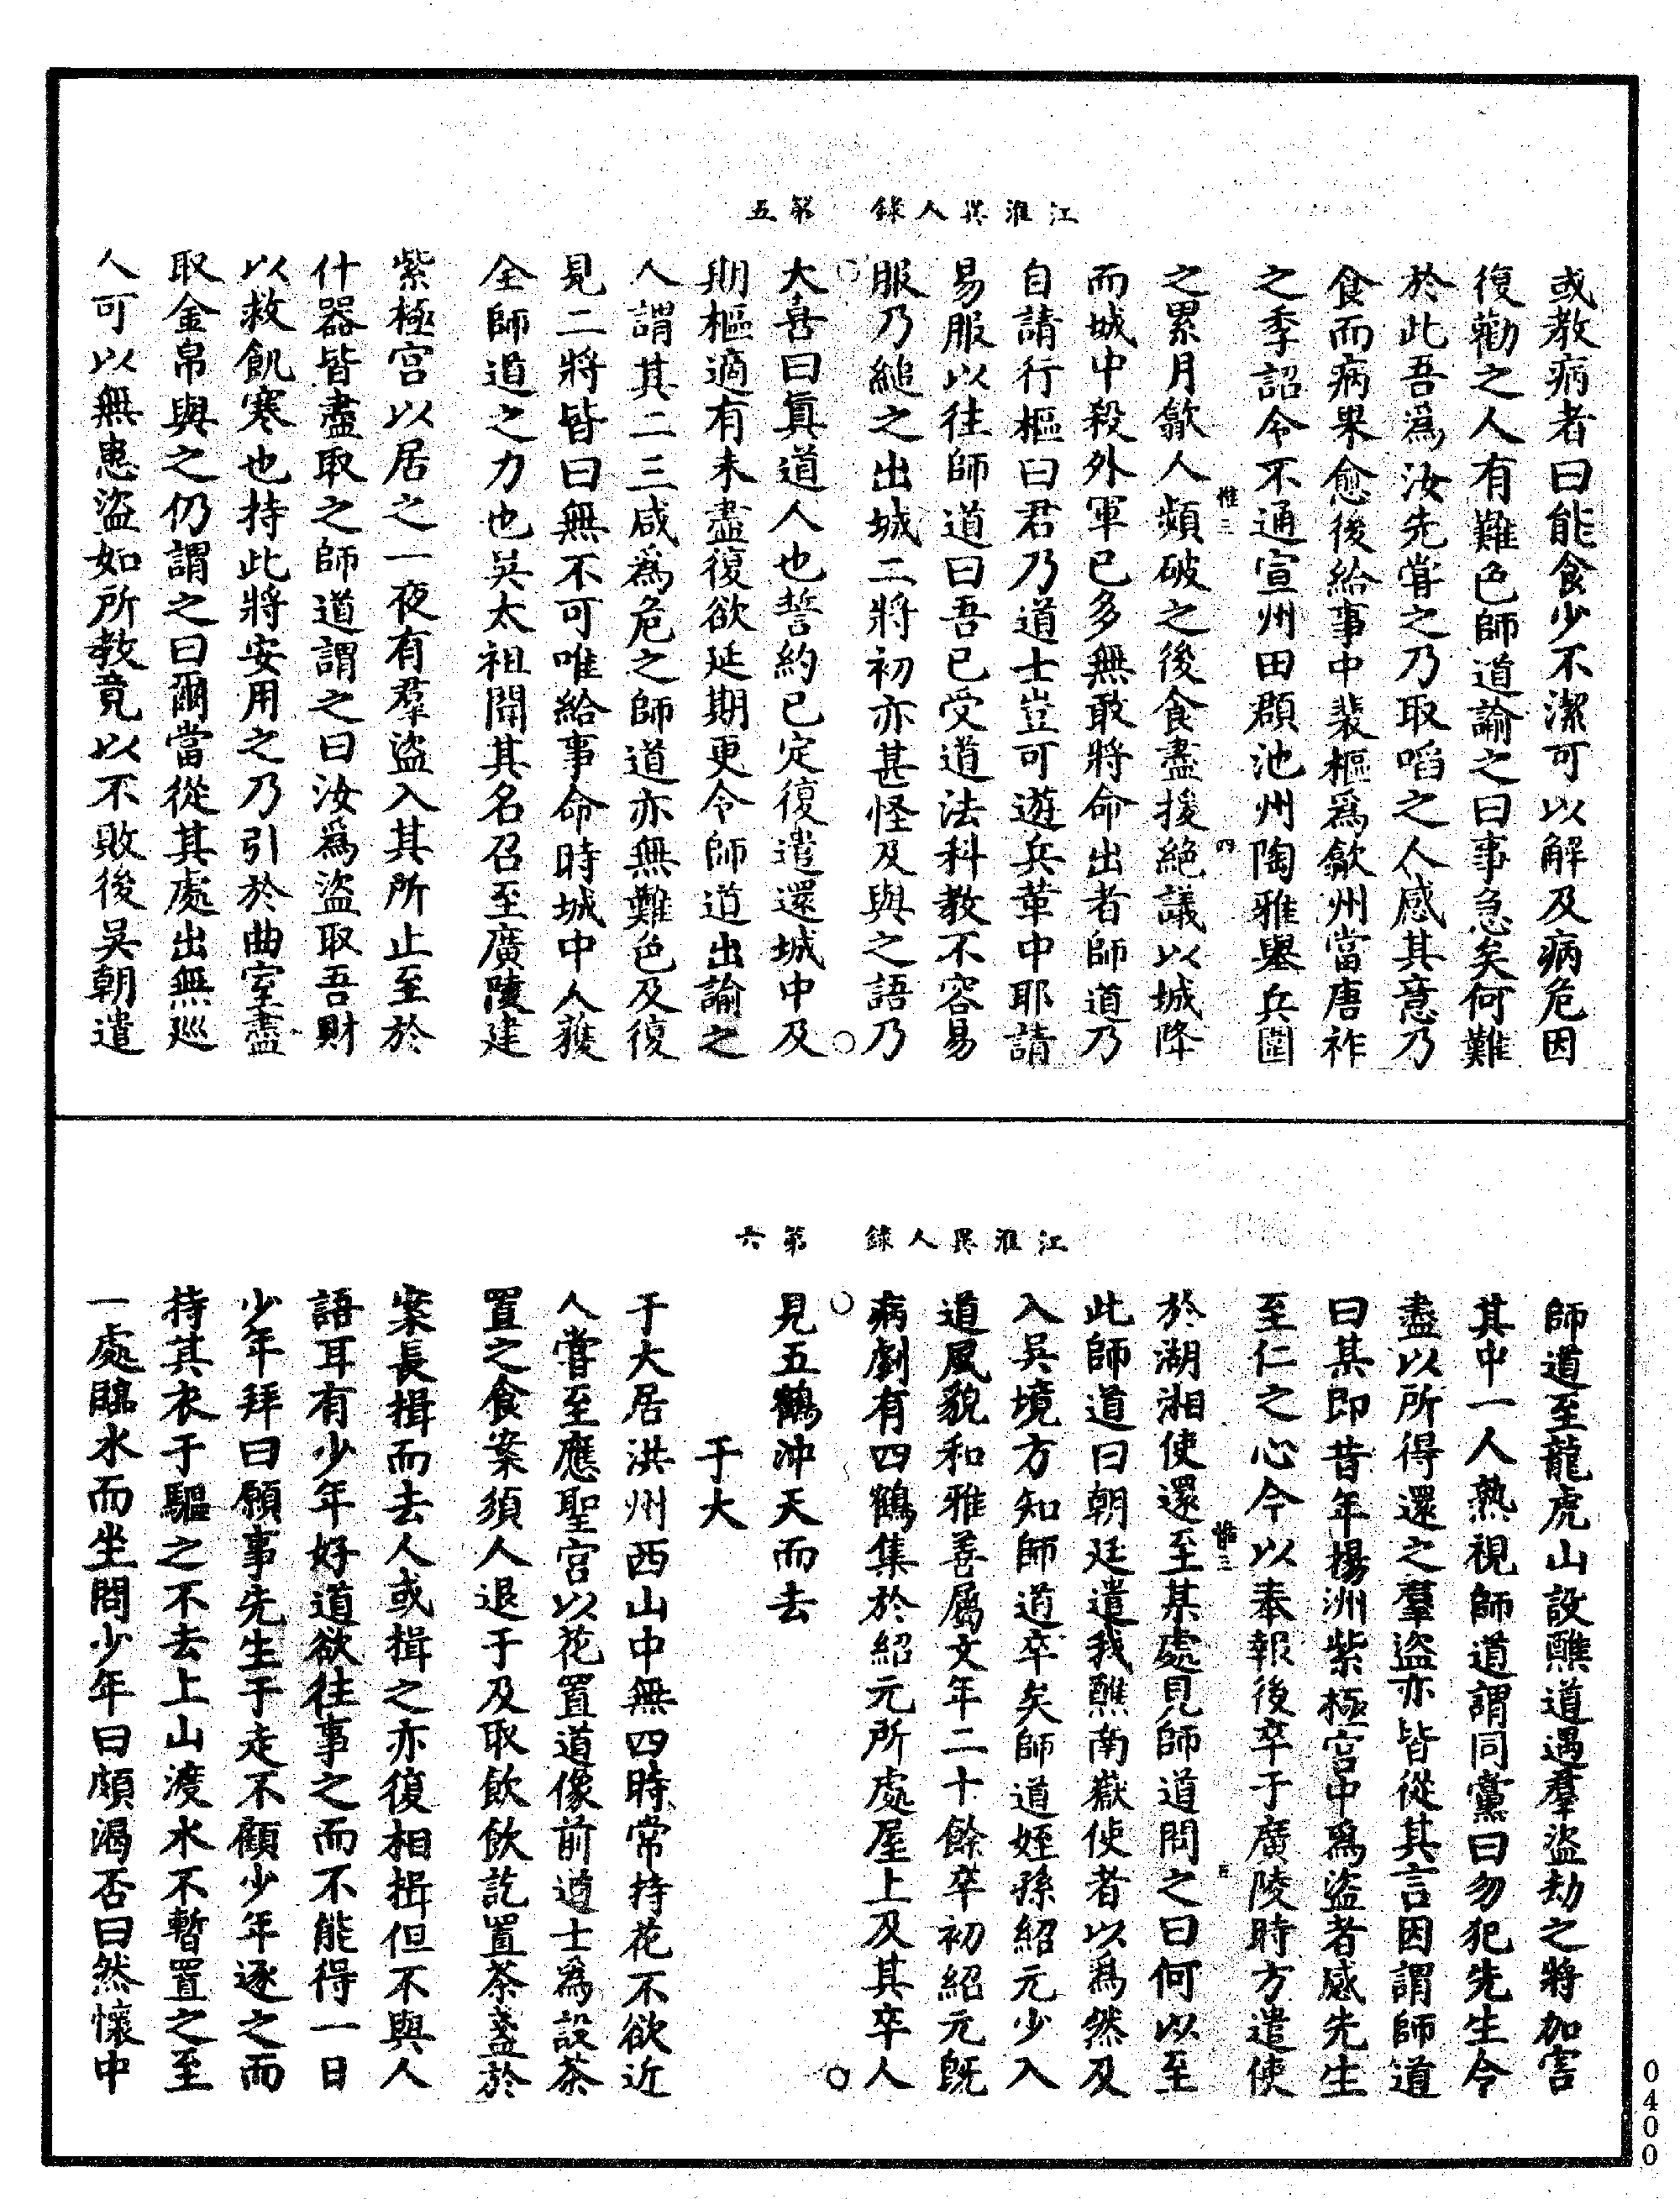 江淮異人錄　第五
或教病者曰能食少不潔可以解及病危因
復勸之人有難色師道諭之曰事急矣何難
於此吾為汝先嘗之乃取啗之人感其意乃
食而病果愈後給事中裴樞為歙州當唐祚
之季詔令不通宣州田頵池州陶雅舉兵圍
之累月歙人頻破之後食盡援絕議以城降
惟三
四
而城中殺外軍已多無敢將命出者師道乃
自請行樞曰君乃道士豈可遊兵革中耶請
易服以往師道曰吾已受道法科教不容易
服乃縋之出城二將初亦甚怪及與之語乃
大喜曰真道人也誓約已定復遣還城中及
期樞適有未盡復欲延期更令師道出諭之
人謂其二三咸為危之師道亦無難色及復
見二將皆曰無不可唯給事命時城中人獲
全師道之力也吳太祖聞其名召至廣陵建
紫極宮以居之一夜有羣盜入其所止至於
什器皆盡取之師道謂之曰汝為盜取吾財
以救飢寒也持此將安用之乃引於曲室盡
取金帛與之仍謂之曰爾當從其處出無巡
人可以無患盜如所教竟以不敗後吳朝遣
江淮異人錄　第六
師道至龍虎山設醮道遇羣盜劫之將加害
其中一人熟視師道謂同黨曰勿犯先生令
盡以所得還之羣盜亦皆從其言因謂師道
曰某即昔年楊洲紫極宮中為盜者感先生
至仁之心今以奉報後卒于廣陵時方遣使
惟三
五
於湖湘使還至某處見師道問之曰何以至
此師道曰朝廷遣我醮南嶽使者以為然及
入吳境方知師道卒矣師道姪孫紹元少入
道風貌和雅善屬文年二十餘卒初紹元既
病劇有四鶴集於紹元所處屋上及其卒人
見五鶴沖天而去
于大
于大居洪州西山中無四時常持花不欲近
人嘗至應聖宮以花置道像前道士為設茶
置之食案須人退于及取飲飲訖置茶盞於
案長揖而去人或揖之亦復相揖但不與人
語耳有少年好道欲往事之而不能得一日
少年拜曰願事先生于走不顧少年逐之而
持其衣于驅之不去上山渡水不暫置之至
一處臨水而坐問少年曰頗渴否曰然懷中
0400